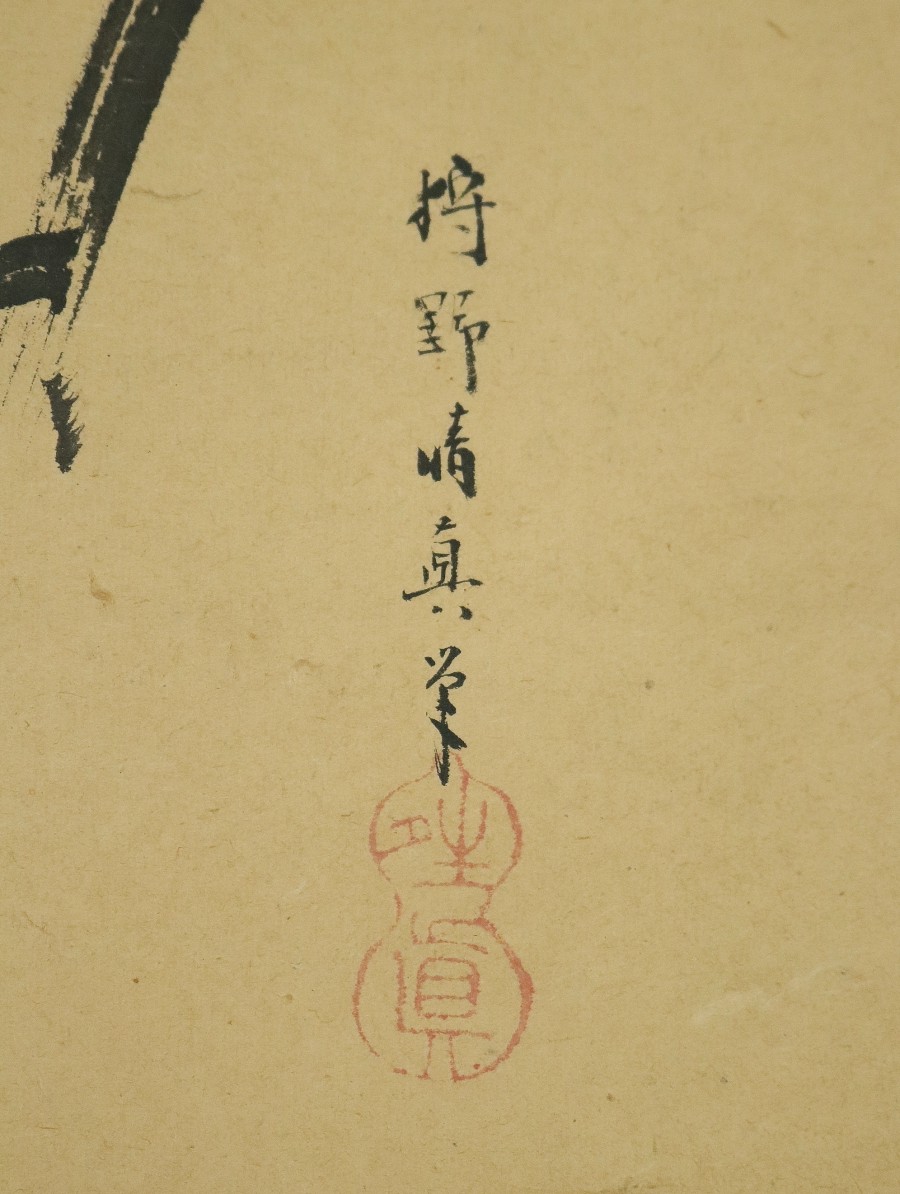 狩野晴真筆
晴眞